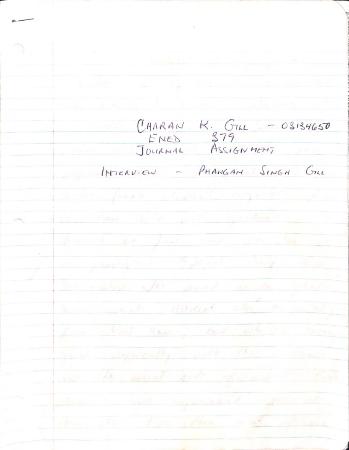 CHARAN K. GILL - 03134650
ENED 379
JOURNAL ASSIGNMENT
INTERVIEW - PHANGAN SINGH GILL